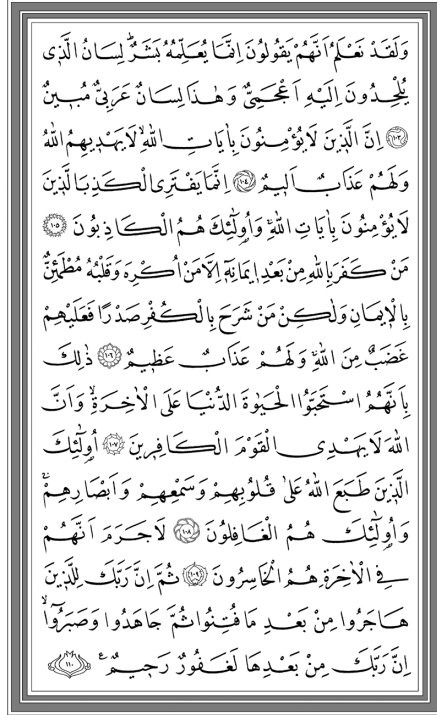 وَلَقَدْ نَعْلَمُ اَنَّهُمْ يَقُولُونَ اِنَّمَا يُعَلِّمُهُ بَشَرٌۜ لِسَانُ الَّذ۪ي
يُلْحِدُونَ اِلَيْهِ اَعْجَمِيٌّ وَهٰذَا لِسَانٌ عَرَبِيٌّ مُب۪ينٌ
﴿١٠٣﴾ اِنَّ الَّذ۪ينَ لَا يُؤْمِنُونَ بِاٰيَاتِ اللّٰهِۙ لَا يَهْد۪يهِمُ اللّٰهُ
وَلَهُمْ عَذَابٌ اَل۪يمٌ ﴿١٠٤﴾ اِنَّمَا يَفْتَرِي الْكَذِبَ الَّذ۪ينَ
لَا يُؤْمِنُونَ بِاٰيَاتِ اللّٰهِۚ وَاُو۬لٰٓئِكَ هُمُ الْكَاذِبُونَ ﴿١٠٥﴾
مَنْ كَفَرَ بِاللّٰهِ مِنْ بَعْدِ ا۪يمَانِه۪ٓ اِلَّا مَنْ اُكْرِهَ وَقَلْبُهُ مُطْمَئِنٌّ
بِالْا۪يمَانِ وَلٰكِنْ مَنْ شَرَحَ بِالْكُفْرِ صَدْرًا فَعَلَيْهِمْ
غَضَبٌ مِنَ اللّٰهِۚ وَلَهُمْ عَذَابٌ عَظ۪يمٌ ﴿١٠٦﴾ ذٰلِكَ
بِاَنَّهُمُ اسْتَحَبُّوا الْحَيٰوةَ الدُّنْيَا عَلَى الْاٰخِرَةِۙ وَاَنَّ
اللّٰهَ لَا يَهْدِي الْقَوْمَ الْكَافِر۪ينَ ﴿١٠٧﴾ اُو۬لٰٓئِكَ
الَّذ۪ينَ طَبَعَ اللّٰهُ عَلٰى قُلُوبِهِمْ وَسَمْعِهِمْ وَاَبْصَارِهِمْۚ
وَاُو۬لٰٓئِكَ هُمُ الْغَافِلُونَ ﴿١٠٨﴾ لَا جَرَمَ اَنَّهُمْ
فِي الْاٰخِرَةِ هُمُ الْخَاسِرُونَ ﴿١٠٩﴾ ثُمَّ اِنَّ رَبَّكَ لِلَّذ۪ينَ
هَاجَرُوا مِنْ بَعْدِ مَا فُتِنُوا ثُمَّ جَاهَدُوا وَصَبَرُٓواۙ
اِنَّ رَبَّكَ مِنْ بَعْدِهَا لَغَفُورٌ رَح۪يمٌ۟ ﴿١١٠﴾